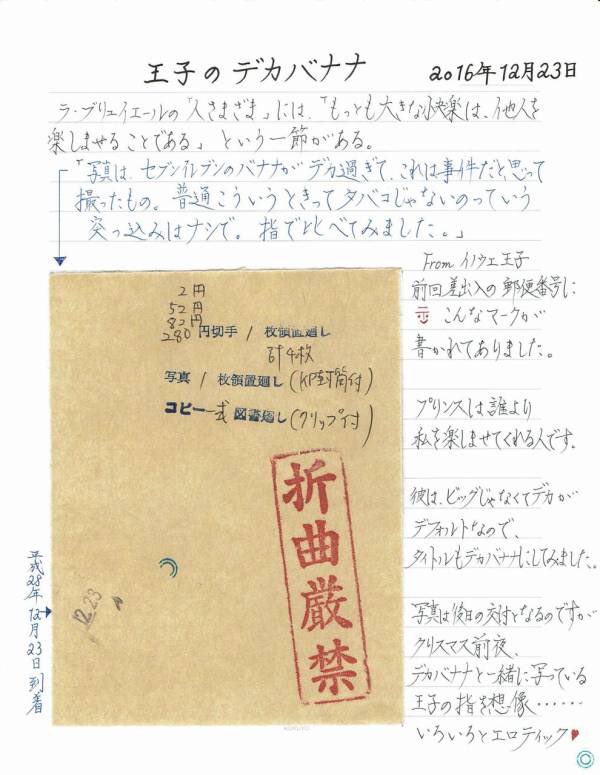 王子のデカバナナ 2016年12月23日
ラ・ブリュイエールの「人さまざま」には、「もっとも大きな快楽は、他人を
楽しませることである」という一節がある。
「写真は、セブンイレブンのバナナがデカ過ぎて、これは事件だと思って
撮ったもの。普通こういうときってタバコじゃないのっていう
突っ込みはナシで。指で比べてみました。」
From イノウエ王子
前回差出人の郵便番号に
〒 こんなマークが
書かれてありました。
プリンスは誰より
私を楽しませてくれる人です。
彼は、ビッグじゃなくてデカが
デフォルトなので、
タイトルもデカバナナにしてみました。
写真は後日の交付となるのですが
クリスマス前夜、
デカバナナと一緒に写っている
王子の指を想像……
いろいろとエロティック♥
2円
52円
82円
280円切手 / 枚領置廻し
計4枚
写真 / 枚領置廻し(KP封筒付)
コピー一式 図書廻し(クリップ付)
折曲厳禁
12.23
平成28年12月23日到着
KOKUYO